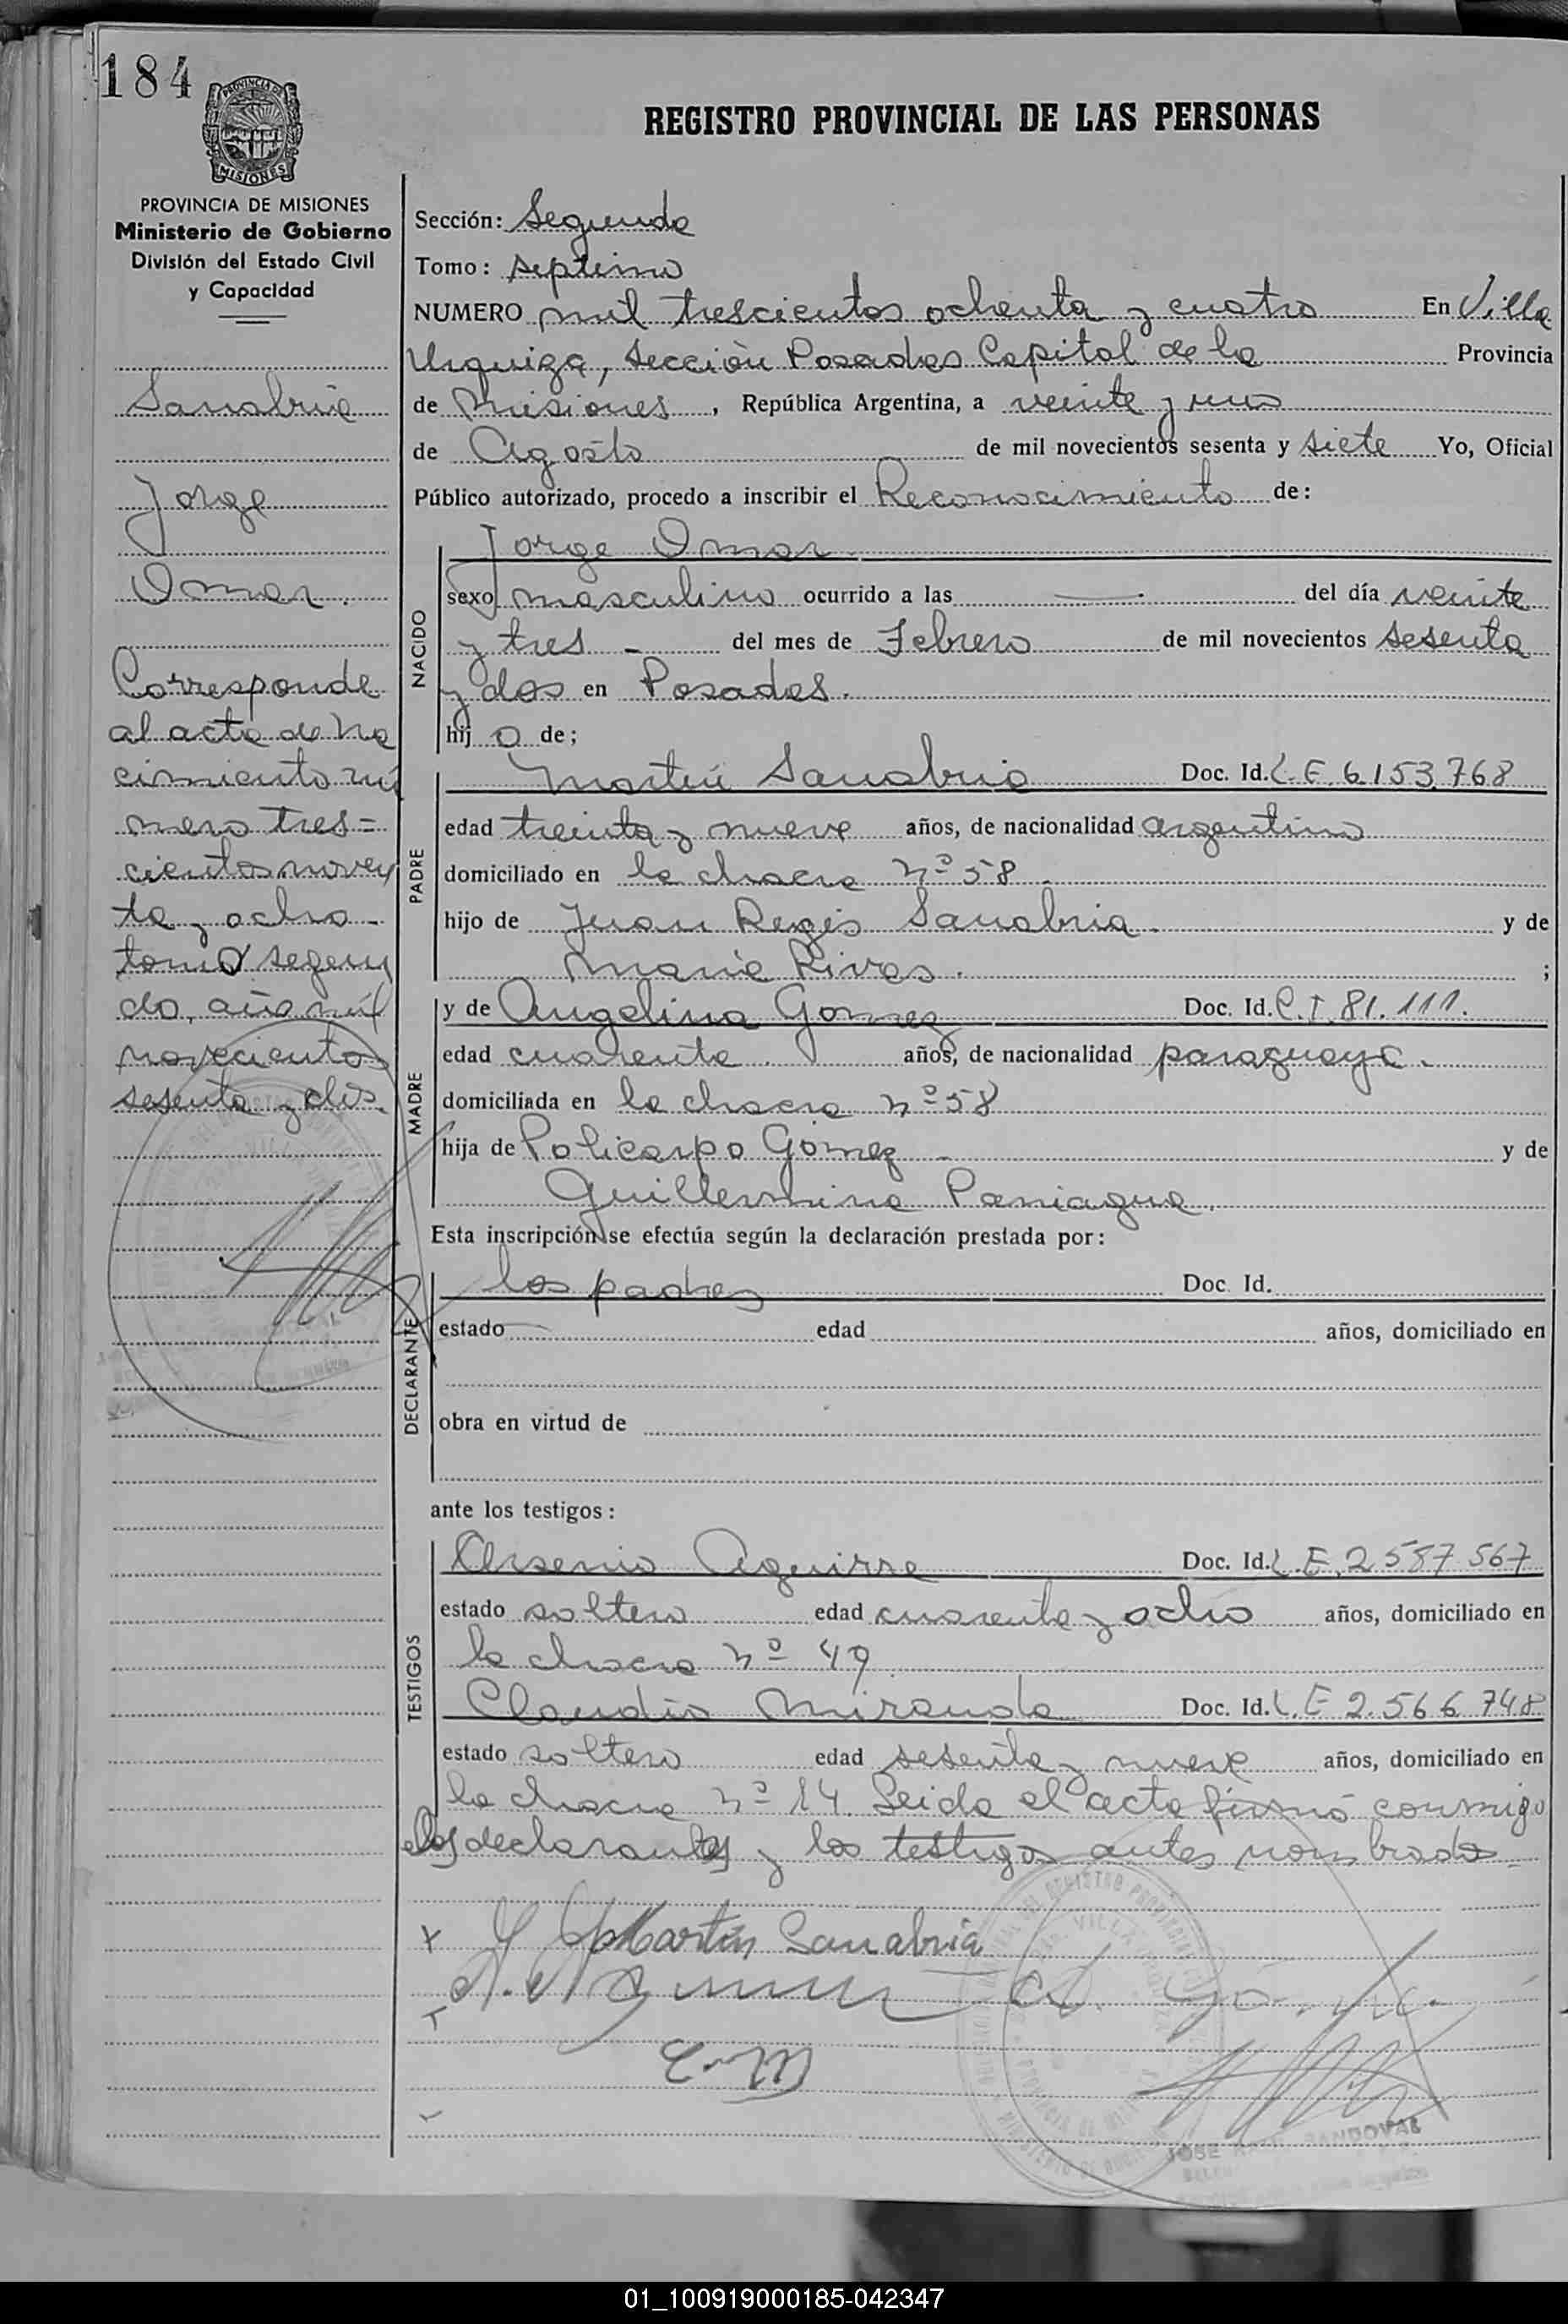 184
PROVINCIA DE MISIONES
PROVINCIA DE MISIONES
Ministerio de Gobierno
División del Estado Civil
y Capacidad
Sanabria
Jorge
Omar.
Corresponde
al acta de na
cimiento nú
mero tres=
cientos noven
ta y ocho -
tomo segun
do, año mil
novecientos
sesenta y dos.
REGISTRO PROVINCIAL DE LAS PERSONAS
Sección: Segunda
Tomo: septimo
NUMERO mil trescientos ochenta y cuatro En Villa
Urquiza, Sección Posadas Capital de la Provincia
de Misiones, República Argentina, a veinte y uno
de Agosto de mil novecientos sesenta y siete Yo, Oficial
Público autorizado, procedo a inscribir el Reconocimiento de:
NACIDO
Jorge Omar
sexo masculino ocurrido a las —. del día veinte
y tres - del mes de Febrero de mil novecientos sesenta
y dos en Posadas.
hij o de;
PADRE
Martín Sanabria Doc. Id. L.E. 6.153.768
edad treinta y nueve años, de nacionalidad argentino
domiciliado en la chacra nº 58.
hijo de Juan Regis Sanabria. y de
Maria Rivas. ;
MADRE
y de Angelina Gomez Doc. Id. C.I. 81.111.
edad cuarenta. años, de nacionalidad paraguaya.
domiciliada en la chacra nº 58
hija de Policarpo Gómez - y de
Guillermina Paniagua.
Esta inscripción se efectúa según la declaración prestada por:
DECLARANTE
los padres Doc. Id.
estado edad años, domiciliado en
obra en virtud de
ante los testigos:
TESTIGOS
Arsenio Aguirre Doc. Id. L.E. 2.587.567
estado soltero edad cuarenta y ocho años, domiciliado en
la chacra nº 49
Claudio Miranda Doc. Id. L.E 2.566.748
estado soltero edad sesenta y nueve años, domiciliado en
la chacra nº 14. Leida el acta firmó conmigo
los declarantes y los testigos antes nombrados=
Martín Sanabria
C.M
JOSE SANDOVAL
01_100919000185-042347